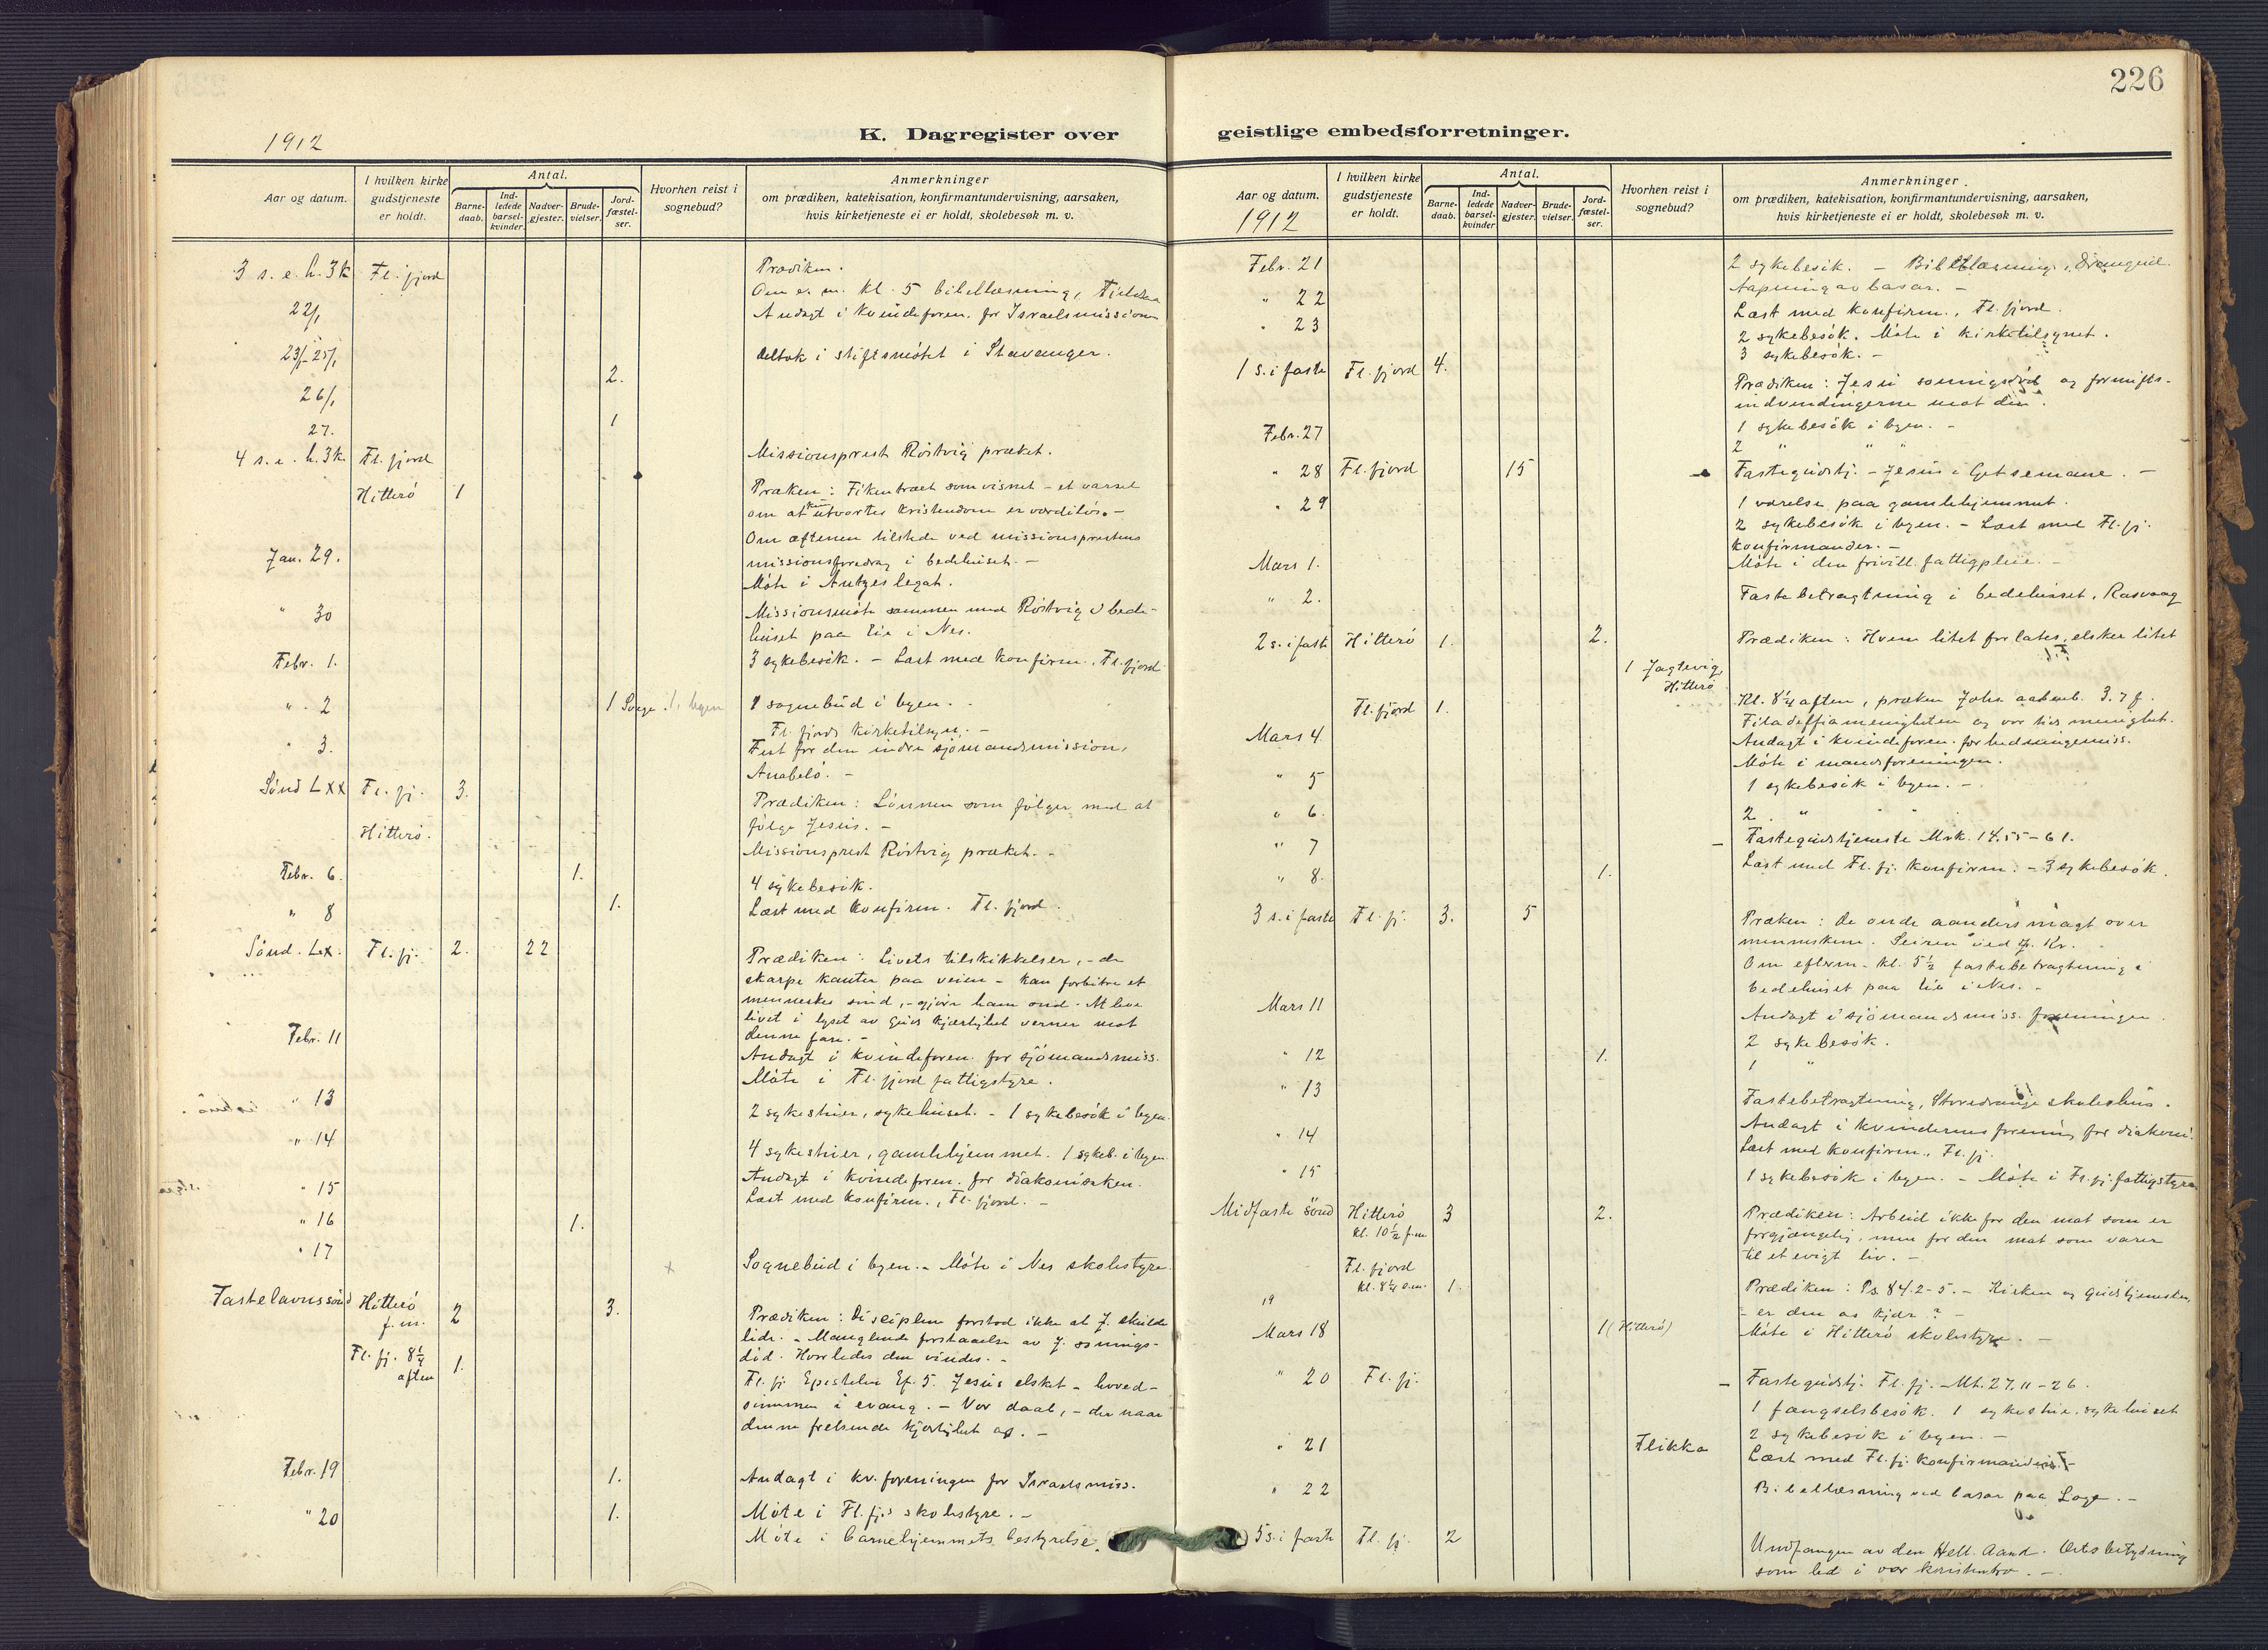 226
1912
K. Dagregister over geistlige embedsforretninger.
Aar og datum.
I hvilken kirke gudstjeneste er holdt.
Antal.
Barne-daab.
Ind-ledede barsel-kvinder.
Nadver-gjester.
Brude-vielser.
Jord-fæstel-ser.
Hvorhen reist i sognebud?
Anmerkninger
om prædiken, katekisation, konfirmantundervisning, aarsaken,
hvis kirketjeneste ei er holdt, skolebesøk m. v.
3 s. e. h. 3k Fl. fjord Prædiken.
Om e. m. kl. 5 bibellæsning,
22/1 Andagt i kvindeforen. for Israelsmissionen
23/1-25/1 deltok i stiftsmötet i Stavanger.
26/1 2.
27. 1
4 s. e. h. 3k. Fl. fjord Missionsprest Röstvig præket.
Hitterö 1 Præken: Fikentræet som visnet - et varsel
om at kun utvortes kristendom er værdilös. -
Om aftenen tilstede ved missionsprestens
missionsforedrag i bedehuset. -
Jan. 29. Möte i legat.
" 30 Missionsmöte sammen med Röstvig i bede-
huset paa Lie i Nes.
Febr. 1. 3 sykebesök. - Læst med konfirm., Fl. fjord
" 2 1 1. byen 1 sognebud i byen. -
Fl. fjords kirketilsyn. -
" 3. Fest for den indre sjömandsmission,
Anabelö. -
Sönd LXX Fl. fj. 3. Prædiken: Lönnen som fölger med at
fölge Jesus. -
Hitterö. Missionsprest Röstvig præket. -
Febr. 6. 1. 4 sykebesök.
" 8 1. Læst med konfirm. Fl. fjord.
Sönd. Lx. Fl. fj. 2. 22 Prædiken: Livets tilskikkelser, - de
skarpe kanter paa veien - kan forbitre et
menneskes sind, - gjöre ham ond. At leve
livet i lyset av Guds kjærlighet verner mot
denne fare. -
Febr. 11 Andagt i kvindeforen. for sjömandsmiss.
Möte i Fl. fjord fattigstyre.
" 13 2 sykestuer, sykehuset. - 1 sykebesök i byen.
" 14 4 sykestuer, gamlehjemmet. 1 sykeb. i byen.
Andagt i kvindeforen. for diakonisaken.
" 15 Læst med konfirm., Fl. fjord. -
" 16 1.
" 17 x Sognebud i byen. - Möte i Nes skolestyre.
Fastelavnssönd Hitterö f. m. 2 3. Prædiken: Disciplene forstod ikke at J. skulde
lide. - Manglende forstaaelse av J. sonings-
död. Hvorledes den vindes. -
Fl. fj. 8¼ aften 1. Fl. fj. Epistelen Ef. 5. Jesus elsket - hoved-
summen i evang. - Vor daab, - der naar
denne frelsende kjærlighet os. -
Febr. 19 1. Andagt i kv. foreningen for Israelsmiss.
" 20 1. Möte i Fl. fj.s skolestyre. -
Möte i barnehjemmets bestyrelse.
Aar og datum.
1912
I hvilken kirke gudstjeneste er holdt.
Antal.
Barne-daab.
Ind-ledede barsel-kvinder
Nadver-gjester.
Brude-vielser.
Jord-fæstel-ser.
Hvorhen reist i sognebud?
Anmerkninger
om prædiken, katekisation, konfirmantundervisning, aarsaken,
hvis kirketjeneste ei er holdt, skolebesøk m. v.
Febr. 21 2 sykebesök. - Bibellæsning,
Aapning av basar. -
" 22 Læst med konfirm., Fl. fjord.
" 23 2 sykebesök. Möte i kirketilsynet.
3 sykebesök. -
1 s. i faste Fl. fjord 4. Prædiken: Jesu soningsdöd og fornufts-
indvendingerne mot den.
Febr. 27 1 sykebesök i byen. -
2 " " "
" 28 Fl. fjord 15 Fastegudstj. - Jesus i Getsemane. -
" 29 1 værelse paa gamlehjemmet.
2 sykebesök i byen. - Læst med Fl. fj.
konfirmander. -
Mars 1. Möte i den frivill. fattigpleie. -
" 2. Fastebetragtning i bedehuset, Rasvaag
2 s. i faste Hitterö 1. 2. Prædiken: Hvem litet forlates, elsker litet
1 Jagtevig, Hitterö
Fl. fjord 1. Kl. 8¼ aften, præken Johs aabenb. 3. 7 f.
Filadelfiamenigheten og vor tids menighet.
Mars 4 Andagt i kvindeforen. for hedningemiss.
Möte i mandsforeningen.
" 5 1 sykebesök i byen. -
" 6 2. " " "
" 7 Fastegudstjeneste Mrk. 14. 55-61.
" 8. 1. Læst med Fl. fj. konfirm. - 3 sykebesök.
3 s. i faste Fl. fj. 3. 5 Præken: De onde aanders magt over
menneskene. Seiren ved J. Kr.
Om efterm. kl. 5½ fastebetragtning i
bedehuset paa Lie i Nes. -
Mars 11 Andagt i sjömandsmiss. foreningen.
" 12 1. 2 sykebesök.
1 "
" 13 Fastebetragtning, skolehus.
" 14 Andagt i kvindernes forening for diakoni.
Læst med konfirm., Fl. fj.
" 15 1 sykebesök i byen. - Möte i Fl. fj. fattigstyre
Midfaste sönd Hitterö kl. 10½ f.m 3 2. Prædiken: Arbeid ikke for den mat som er
forgjængelig, men for den mat som varer
til et evigt liv. -
Fl. fjord kl. 8¼ e.m. 1. Prædiken: Ps. 84. 2-5. - Kirken og gudstjenesten,
- er den os kjær? -
19
Mars 18 1 (Hitterö) Möte i Hitterö skolestyre. -
" 20 Fl. fj. Fastegudstj. Fl. fj. - Mt. 27. 11-26.
1 fængselsbesök. 1 sykestue, sykehuset
" 21 Flikka 2 sykebesök i byen. -
Læst med Fl. fj. konfirmander. -
" 22 Bibellæsning ved basar paa Loge. -
5 s. i faste Fl. fj. 2 Undfangen av den Hell. Aand.
som led i vor kristentro. -